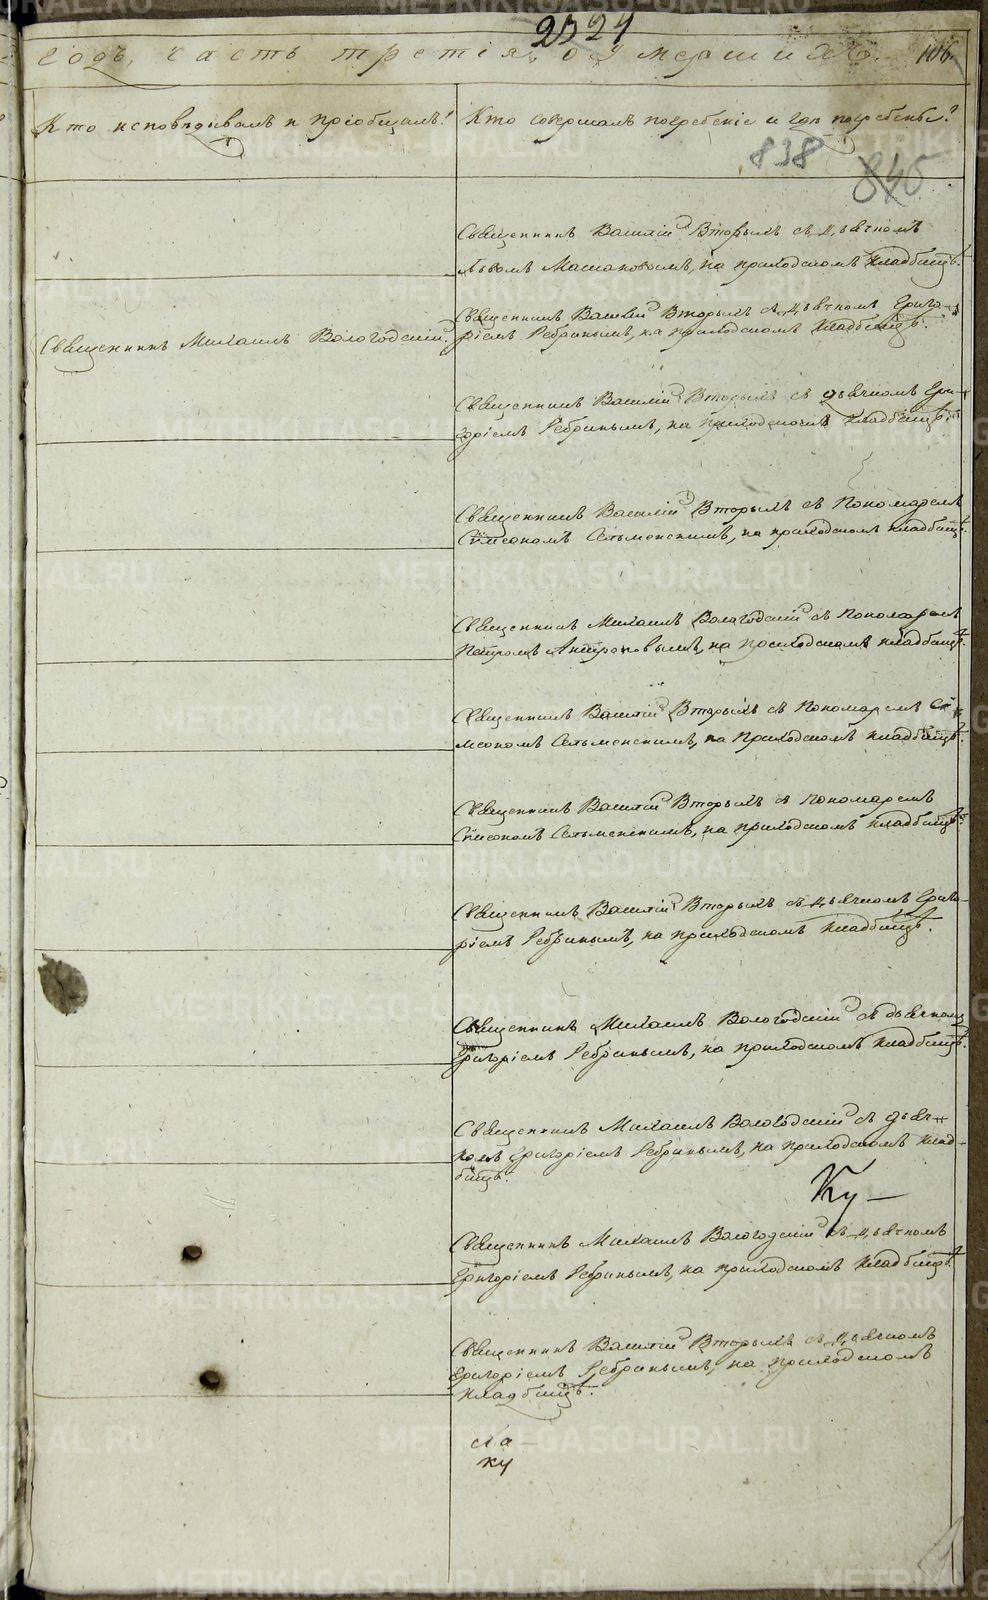 2524
годъ, часть третія, о умершихъ.
Кто исповѣдывалъ и пріобщалъ?
Кто совершалъ погребеніе и гдѣ погребены?
838
845
Священникъ Василій Вторыхъ съ дьячкомъ
на приходскомъ кладбищѣ.
Священникъ Василій Вторыхъ съ дьячкомъ Григо-
ріемъ Ребринымъ, на приходскомъ кладбищѣ.
Священникъ Михаилъ Вологодскій.
Священникъ Василій Вторыхъ съ дьячкомъ Гри-
горіемъ Ребринымъ, на приходскомъ кладбищѣ.
Священникъ Василій Вторыхъ съ Пономаремъ
Сѵмеономъ Сельменскимъ, на приходскомъ кладбищѣ.
Священникъ Михаилъ Вологодскій съ Пономаремъ
Петромъ Антроповымъ, на приходскомъ кладбищѣ.
Священникъ Василій Вторыхъ съ Пономаремъ Сѵ-
меономъ Сельменскимъ, на приходскомъ кладбищѣ.
Священникъ Василій Вторыхъ съ Пономаремъ
Сѵмеономъ Сельменскимъ, на приходскомъ кладбищѣ.
Священникъ Василій Вторыхъ съ дьячкомъ Григо-
ріемъ Ребринымъ, на приходскомъ кладбищѣ.
Священникъ Михаилъ Вологодскій съ дьячкомъ
Григоріемъ Ребринымъ, на приходскомъ кладбищѣ.
Священникъ Михаилъ Вологодскій съ дьяч-
комъ Григоріемъ Ребринымъ, на приходскомъ клад-
бищѣ.
Ку-
Священникъ Михаилъ Вологодскій съ дьячкомъ
Григоріемъ Ребринымъ, на приходскомъ кладбищѣ.
Священникъ Василій Вторыхъ съ дьячкомъ
Григоріемъ Ребринымъ, на приходскомъ
кладбищѣ.
ку
METRIKI.GASO-URAL.RU